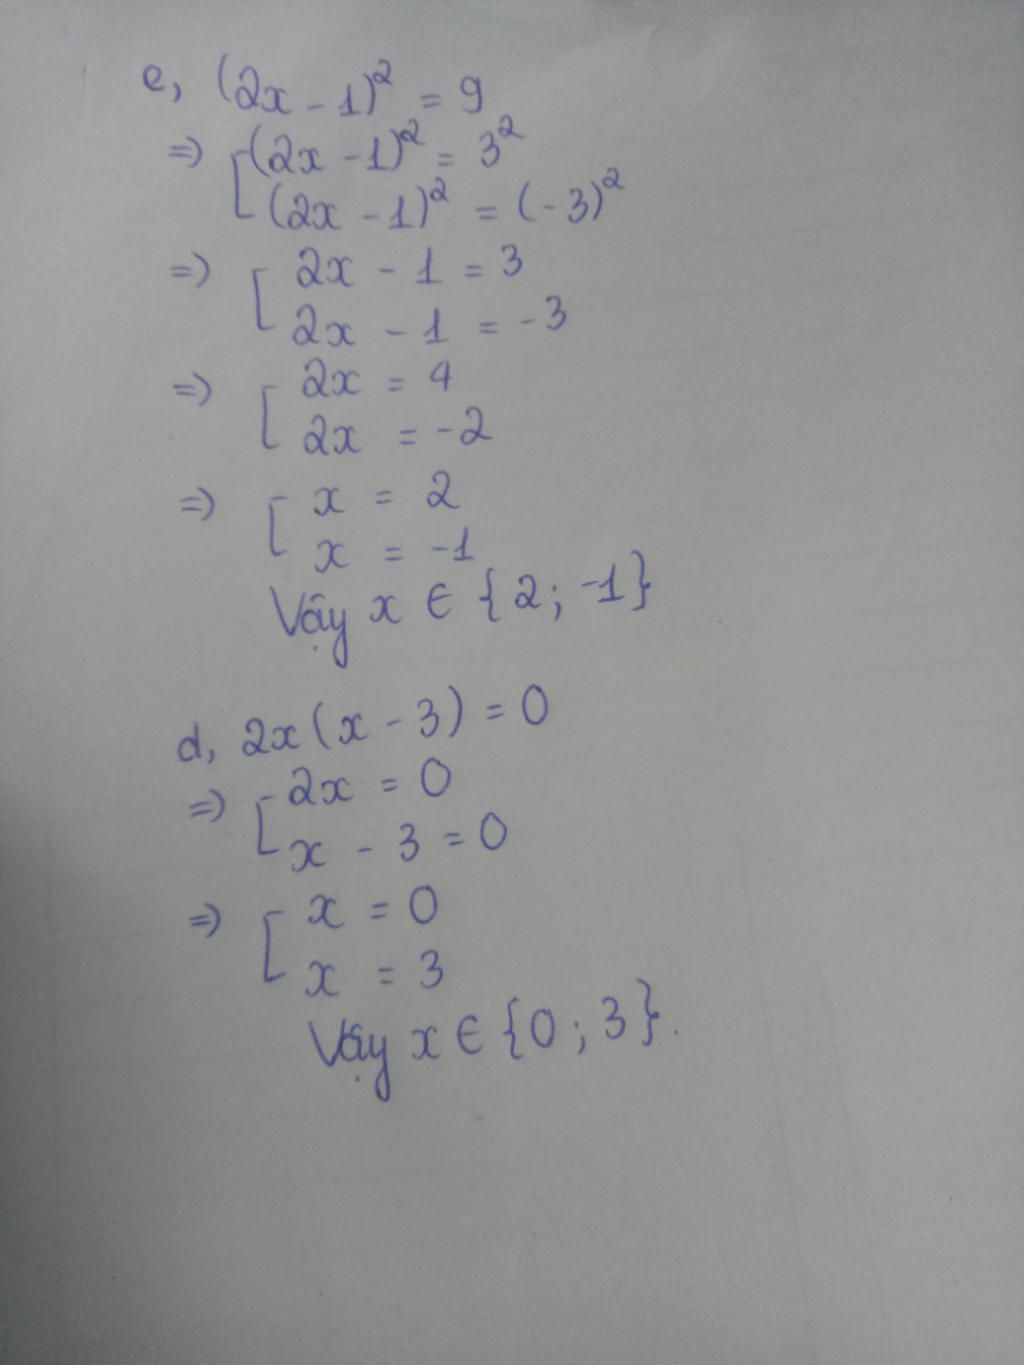 e, (2x - 1)² = 9
=> [ (2x - 1)² = 3²
(2x - 1)² = (-3)²
=> [ 2x - 1 = 3
2x - 1 = -3
=> [ 2x = 4
2x = -2
=> [ x = 2
x = -1
Vậy x ∈ {2; -1}
d, 2x(x - 3) = 0
=> [ 2x = 0
x - 3 = 0
=> [ x = 0
x = 3
Vậy x ∈ {0; 3}.